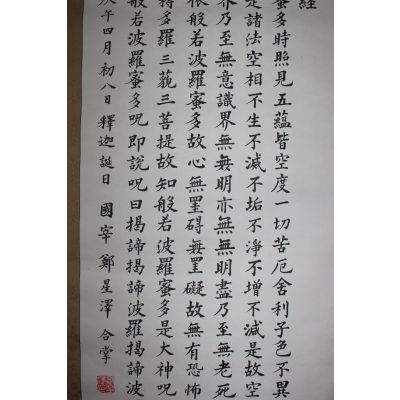 經
蜜多時照見五蘊皆空度一切苦厄舍利子色不異
是諸法空相不生不滅不垢不淨不增不減是故空
界乃至無意識界無無明亦無無明盡乃至無老死
依般若波羅蜜多故心無罣碍無罣礙故無有恐怖
耨多羅三藐三菩提故知般若波羅蜜多是大神呪
般若波羅蜜多呪即說呪曰揭諦揭諦波羅揭諦波
庚午四月初八日釋迦誕日 國宰 鄭星澤 合掌